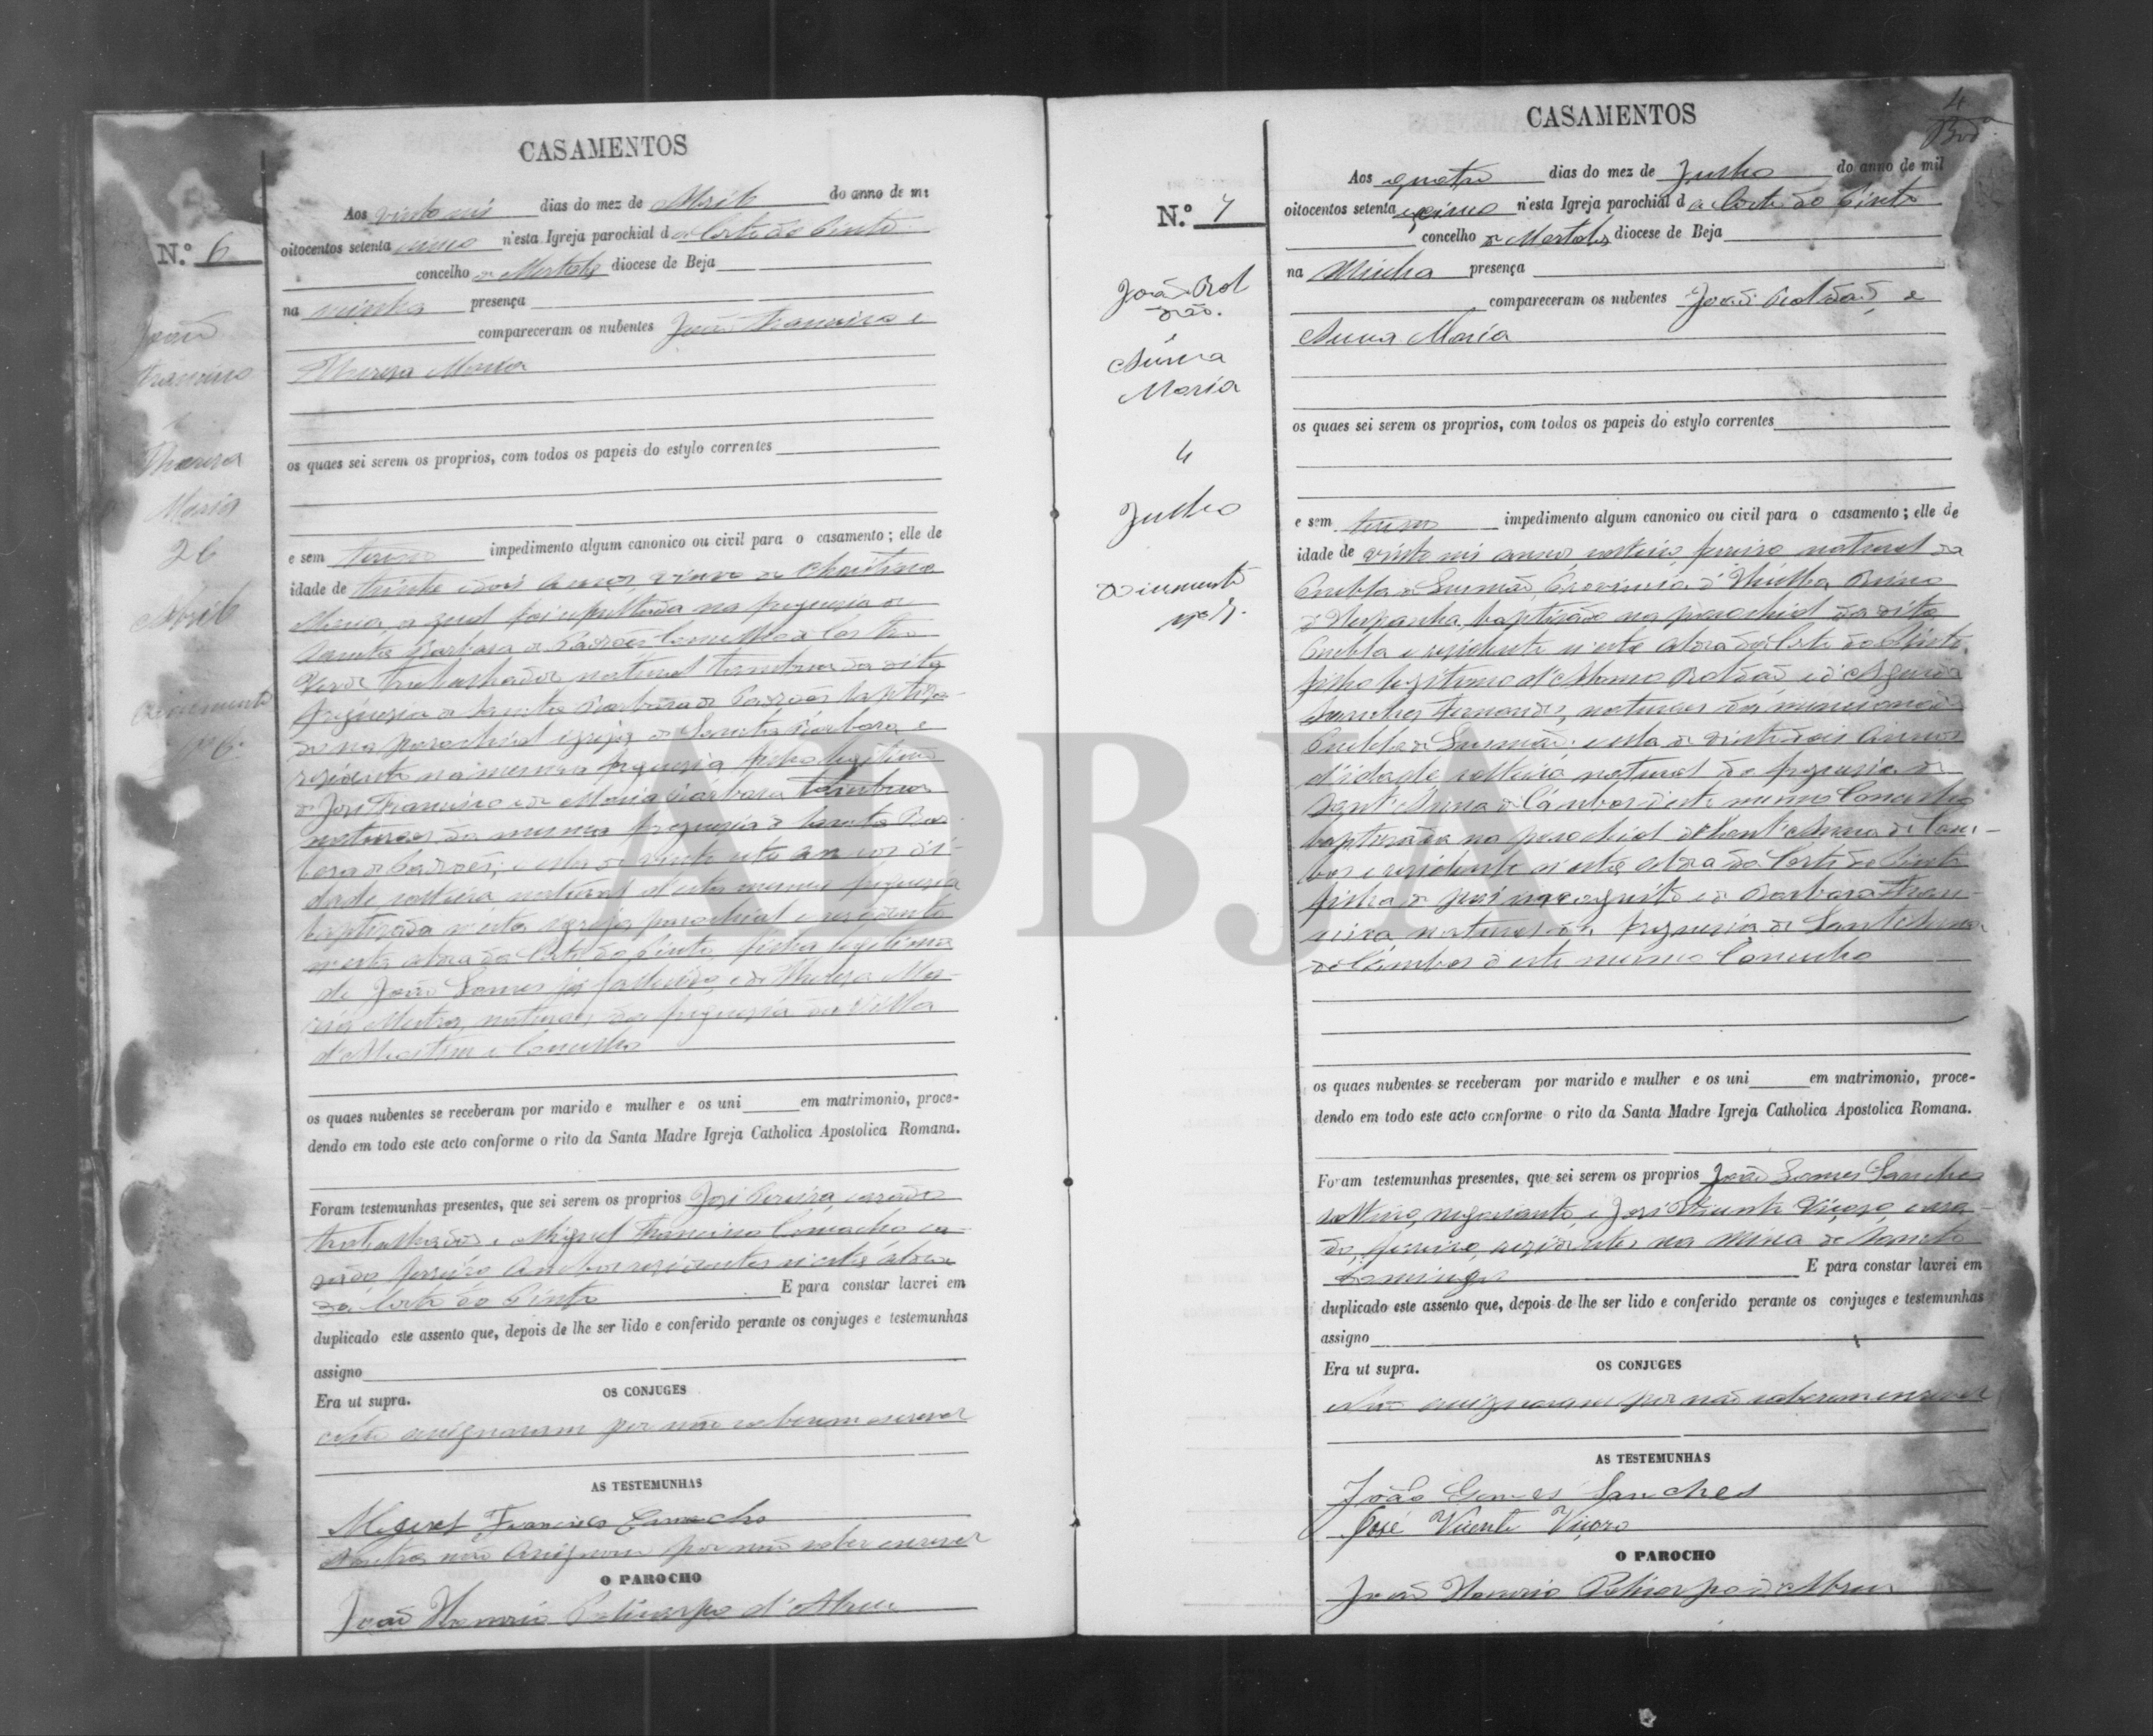 CASAMENTOS
N.º 6
João
Francisco
e
Thereza
Maria
26
Abril
Documento
nº 6.
Aos vinte seis dias do mez de Abril do anno de mi
oitocentos setenta cinco n'esta Igreja parochial da Corte do Pinto
concelho de Mertola diocese de Beja
na minha presença
compareceram os nubentes João Francisco e
Thereza Maria
os quaes sei serem os proprios, com todos os papeis do estylo correntes
e sem terem impedimento algum canonico ou civil para o casamento; elle de
idade de trinta e dois annos viuvo de Christina
Maria a qual foi sepultada na freguesia de
Santa Barbara de Padrões Concelho de Castro
Verde trabalhador natural tambem da dita
freguesia de Santa Barbara de Padrões baptisa-
do na parochial egreja de Santa Barbara e
residente na mesma freguesia filho legitimo
de José Francisco e de Maria Barbara tambem
naturaes da mesma freguesia de Santa Bar-
bara de Padrões; e ella de vinte oito annos d'i-
dade solteira natural d'esta mesma freguesia
baptisada n'esta egreja parochial e residente
n'esta aldea da Corte do Pinto, filha legitima
de João Gomes já fallecido, e de Thereza Ma-
ria naturaes da freguesia da Villa
d' e Concelho
os quaes nubentes se receberam por marido e mulher e os uni em matrimonio, proce-
dendo em todo este acto conforme o rito da Santa Madre Igreja Catholica Apostolica Romana.
Foram testemunhas presentes, que sei serem os proprios José Pereira, casado
trabalhador e Miguel Francisco Camacho ca-
sado ferreiro ambos residentes n'esta aldea
da Corte do Pinto E para constar lavrei em
duplicado este assento que, depois de lhe ser lido e conferido perante os conjuges e testemunhas
assigno
Era ut supra.
OS CONJUGES
Não assignaram por não saberem escrever
AS TESTEMUNHAS
Miguel Francisco Camacho
Outra não assignou por não saber escrever
O PAROCHO
João Honorio Policarpo d'Abreu
4
CASAMENTOS
N.º 7
João Rol
dão.
e
Anna
Maria
4
Junho
Documento
nº 7.
Aos quatro dias do mez de Junho do anno de mil
oitocentos setenta e cinco n'esta Igreja parochial da Corte do Pinto
concelho de Mertola diocese de Beja
na Minha presença
compareceram os nubentes João Roldão, e
Anna Maria
os quaes sei serem os proprios, com todos os papeis do estylo correntes
e sem terem impedimento algum canonico ou civil para o casamento; elle de
idade de vinte seis annos, solteiro, ferreiro natural da
Puebla de Gusmão, Provincia d'Huelba, Reino
d'Hespanha, baptisado na parochial da dita
Puebla e residente n'esta aldea da Corte do Pinto,
filho legitimo d'Alonso Roldão e d'Agueda
Sanches Fernandes, naturaes da mencionada
Puebla de Gusmão: e ella de vinte dois annos
d'idade solteira natural da freguesia de
Sant'Anna de Cambas d'este mesmo Concelho
baptisada na parochial de Sant'Anna de Cam-
bas e residente n'esta aldea da Corte do Pinto
filha de pai incognito e de Barbara Fran-
cisca natural da freguesia de Sant'Anna
de Cambas d'este mesmo Concelho
os quaes nubentes se receberam por marido e mulher e os uni em matrimonio, proce-
dendo em todo este acto conforme o rito da Santa Madre Igreja Catholica Apostolica Romana.
Foram testemunhas presentes, que sei serem os proprios João Gomes Sanches
solteiro, negociante, e José Vicente Viçoso, casa-
do, ferreiro, residentes na Mina de Santo
Domingos E para constar lavrei em
duplicado este assento que, depois de lhe ser lido e conferido perante os conjuges e testemunhas
assigno
Era ut supra.
OS CONJUGES
Não assignaram por não saberem escrever
AS TESTEMUNHAS
João Gomes Sanches
José Vicente Viçoso
O PAROCHO
João Honorio Policarpo d'Abreu
ADBJA